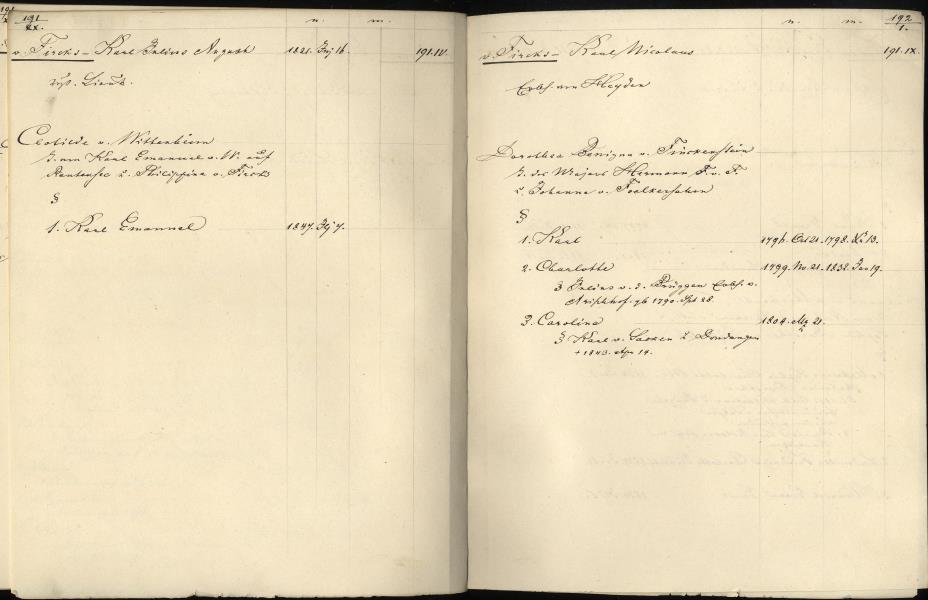 191
XX.
n. m.
v. Fircks – Karl Julius August 1821. 191.IV.
Lieut.
Clotilde v. Wittenheim
T. von Karl Emanuel v. W. auf
v. Fircks
§
1. Karl Emanuel 1847. 7.
n. m. 192
1.
v. Fircks – Karl Nicolaus 191.IX.
Erbh. von Heyden
Dorothea Benigna v. Finckenstein
T. des Majors Hermann F. v. F.
u. Johanna v. Foelkersahm
§
1. Karl 1796. Oct 21. 1798. 13.
2. Charlotte 1799. Nov. 21. 1832. Jan 19.
Julius v. d. Brüggen Erbh. v.
gb 1790. Spt 28.
3. Carolina 1804. Mz 21.
Karl v. Sacken Dondangen
+ 1843. Apr 14.